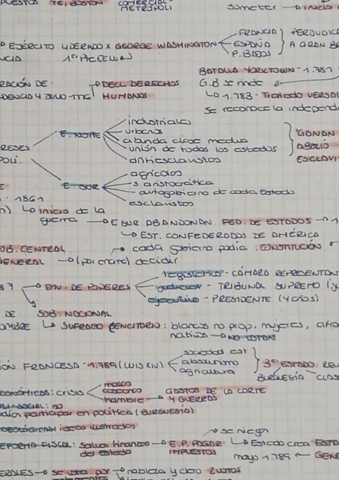 PUESTOS TÉ, BOSTON COMERCIAL METRÓPOLI someter → inicio
EJÉRCITO LIDERADO X GEORGE WASHINGTON FRANCIA PERJUDICA
ESPAÑA A GRAN B
P. BAJOS
NCIA 1er PRESIDEN
RACIÓN DE DECL. DERECHOS BATALLA YORKTOWN - 1.781
DENCIA 4 JULIO 1776 HUMANOS G.B se rinde
↳ 1.783 - Tratado VERSA
Se reconoce la independ
industriales
E. NORTE urbanos GANAN
abanda clase media ABOLIO
REDES unión de todos los estados ESCLAVI
POLÍ. antiesclavistas
agrícolas
E. SUR s. aristocrática
autogobierno de cada Estado
- 1861 esclavistas
→ inicio de la
guerra → E SUR ABANDONAN FED. DE ESTADOS
↳ EST. CONFEDERADOS DE AMÉRICA
OB. CENTRAL → cada gobierno podía : CONSTITUCIÓN
GENERAL → (por errores) decidir
legislativo - CÁMARA REPRESENTAN
DIV. DE PODERES judicial - TRIBUNAL SUPREMO
ejecutivo - PRESIDENTE (4 AÑOS)
DE SOB. NACIONAL
OMBRE ↳ SUFRAGIO CENSITARIO: blancos no prop, mujeres, afro
nativos → NO VOTAN
ÓN FRANCESA - 1.789 (LUIS XVI) sociedad est
absolutismo 3er ESTADO: RE
agricultura BURGUESÍA CLAS
ONÓMICAS: crisis malas GASTOS DE LA CORTE
cosechas Y GUERRAS
hambre
SOCIAL: no
podían participar en política (BURGUESÍA)
IDEOLÓGICAS ideas ilustradas
→ se niegan
REFORMA FISCAL: salvar finanzas → E.P. PAGAR → Estado crea ESTA
del estado IMPUESTOS mayo 1.789 ← GENE
ERALES → se vota por → nobleza y clero 2 VOTOS